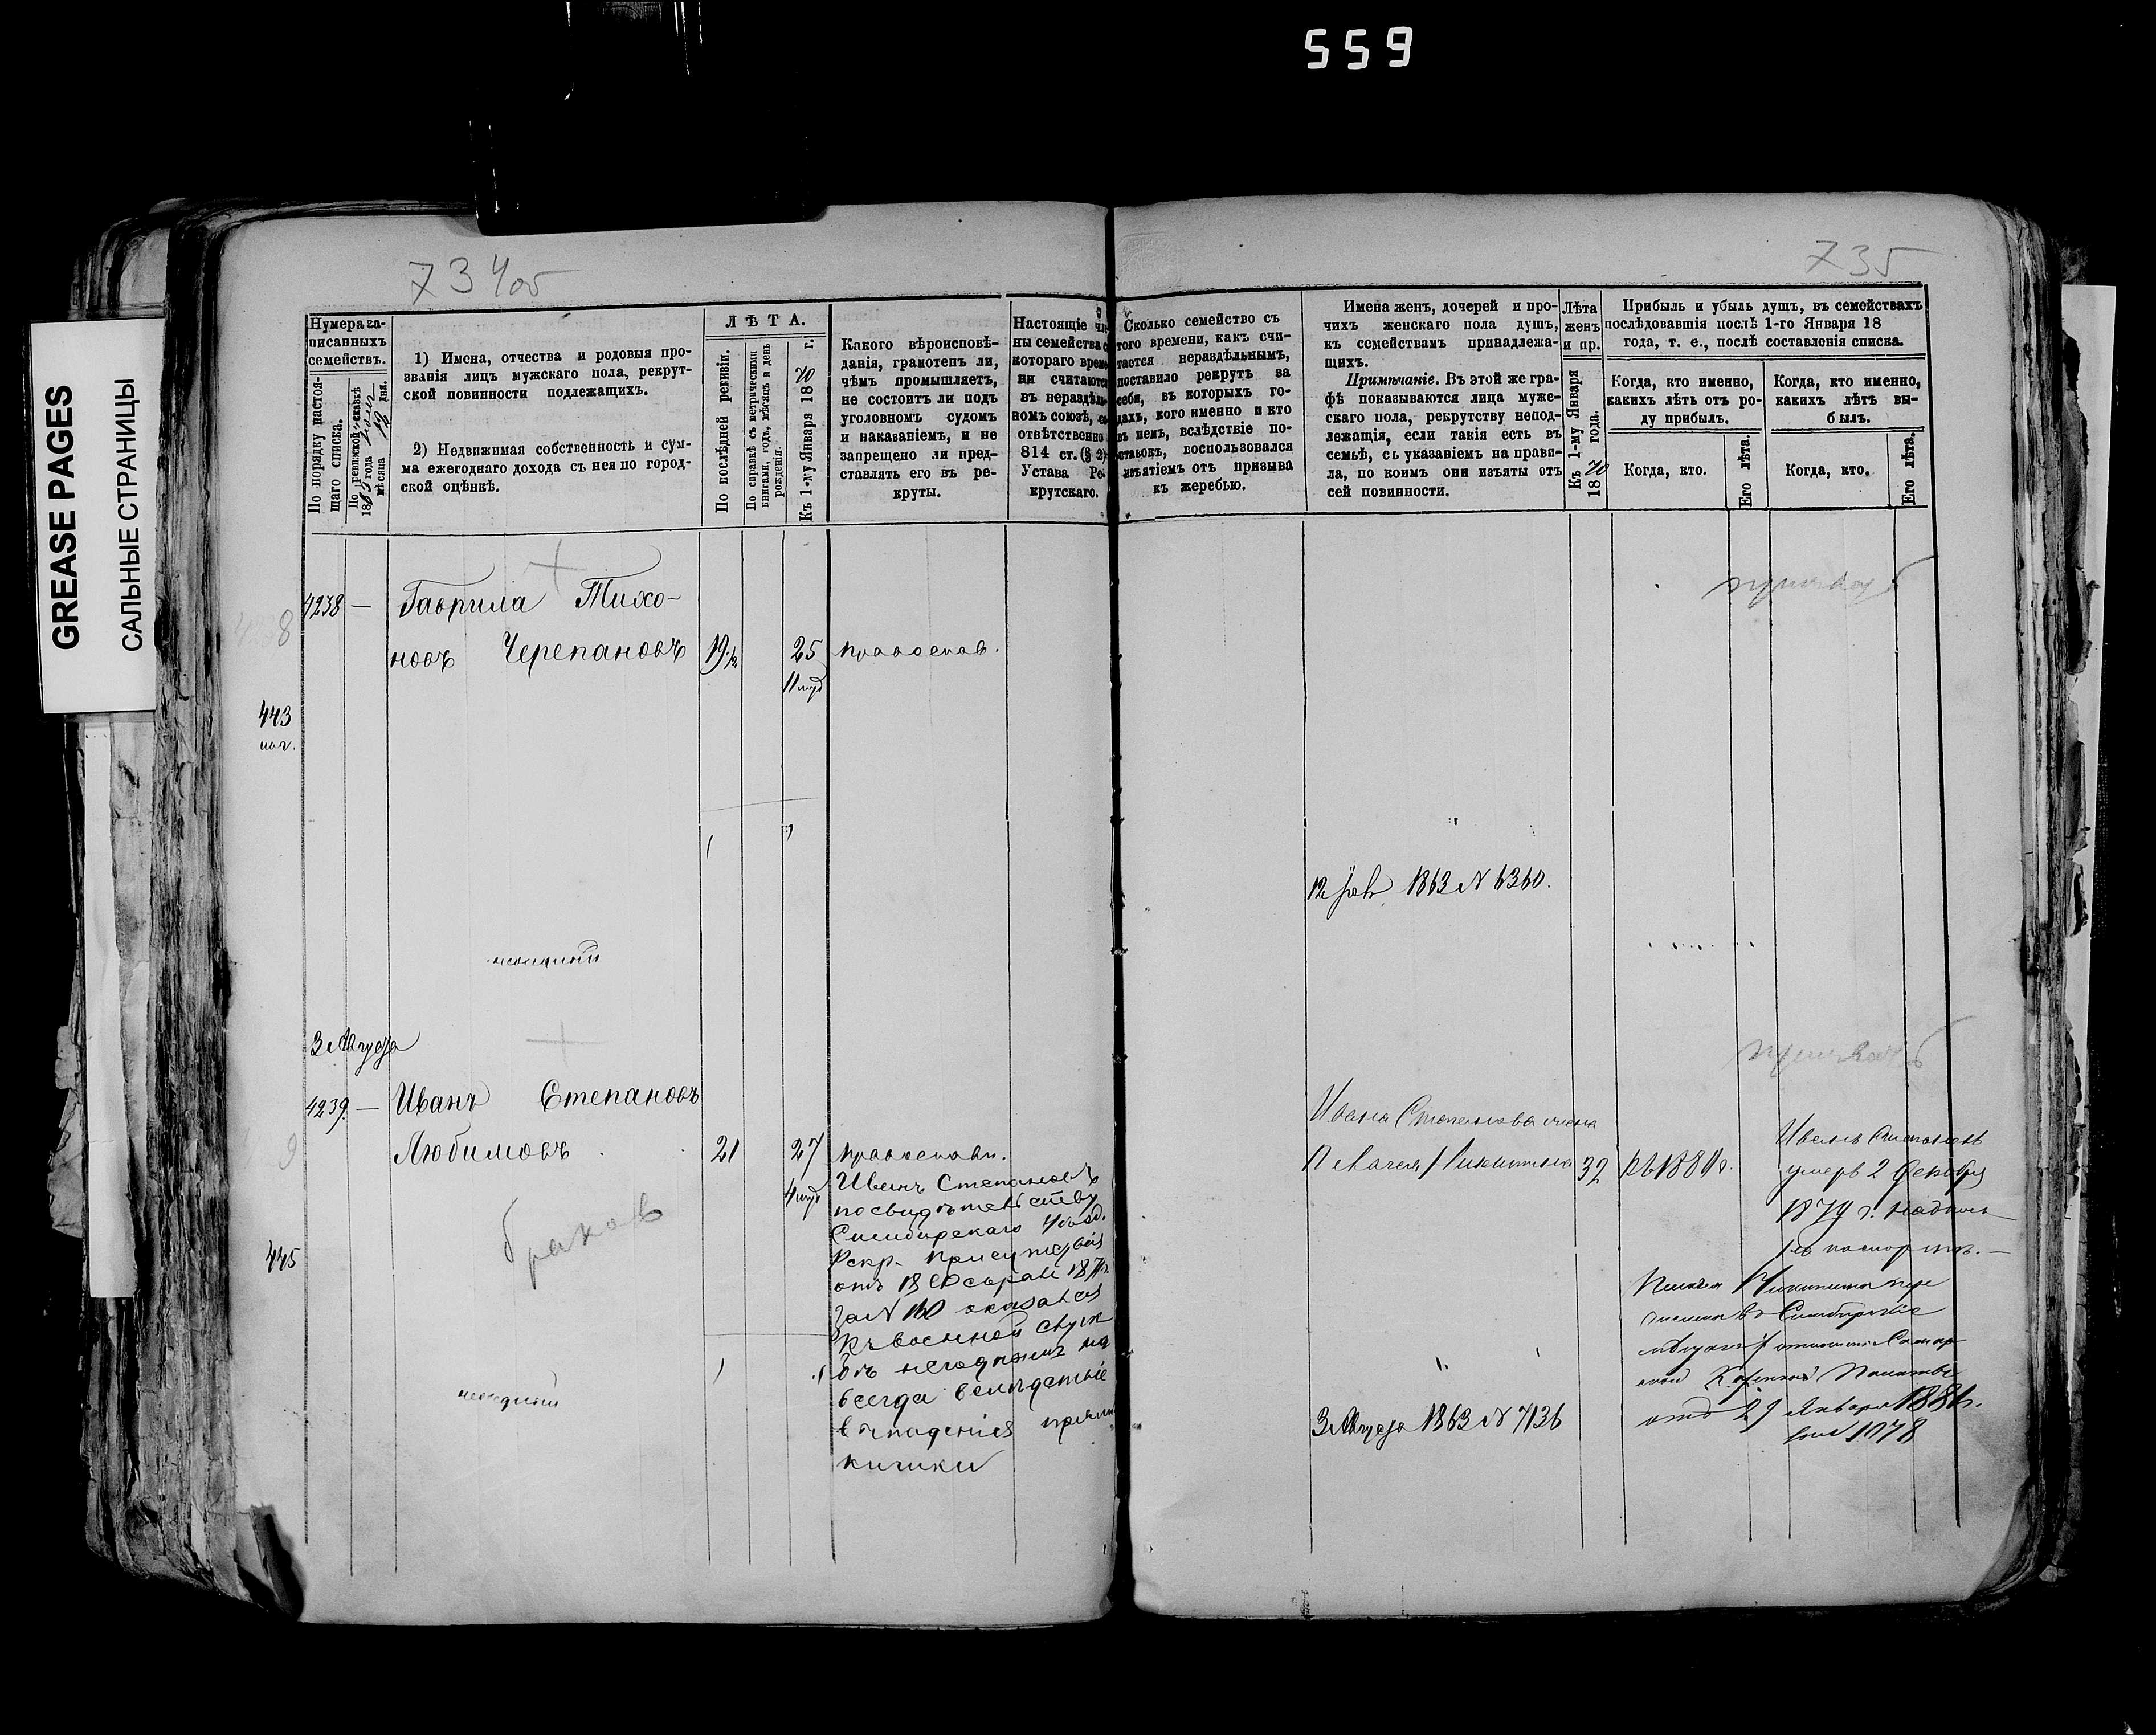 559
GREASE PAGES
САЛЬНЫЕ СТРАНИЦЫ
734об
735
Нумера за-
писанныхъ
семействъ.
По порядку настоя-
щаго списка.
По ревизской скавкѣ
1863 года
мѣсяца 19 дня.
1) Имена, отчества и родовыя про-
званія лицъ мужскаго пола, рекрут-
ской повинности подлежащихъ.
2) Недвижимая собственность и сум-
ма ежегоднаго дохода съ нея по город-
ской оцѣнкѣ.
ЛѢТА.
По послѣдней ревизіи.
По справкѣ съ метрическими
книгами, годъ, мѣсяцъ и день
рожденія.
Къ 1-му Января 1870 г.
Какого вѣроисповѣ-
данія, грамотенъ ли,
чѣмъ промышляетъ,
не состоитъ ли подъ
уголовномъ судомъ
и наказаніемъ, и не
запрещено ли пред-
ставлять его въ ре-
круты.
Настоящіе чле-
ны семейства съ
котораго време-
ни считаются
въ нераздѣль-
номъ союзѣ, со-
отвѣтственно
814 ст. (§ 2)
Устава Ре-
крутскаго.
Сколько семейство съ
того времени, какъ счи-
тается нераздѣльнымъ,
поставило рекрутъ за
себя, въ которыхъ го-
дахъ, кого именно и кто
въ немъ, вслѣдствіе по-
ставокъ, воспользовался
изъятіемъ отъ призыва
къ жеребью.
Имена женъ, дочерей и про-
чихъ женскаго пола душъ,
къ семействамъ принадлежа-
щихъ.
Примѣчаніе. Въ этой же гра-
фѣ показываются лица муже-
скаго пола, рекрутству непод-
лежащія, если такія есть въ
семьѣ, съ указаніемъ на прави-
ла, по коимъ они изъяты отъ
сей повинности.
Лѣта
женъ
и пр.
Къ 1-му Января
1870 года.
Прибыль и убыль душъ, въ семействахъ
послѣдовавшія послѣ 1-го Января 18
года, т. е., послѣ составленія списка.
Когда, кто именно,
какихъ лѣтъ отъ ро-
ду прибылъ.
Когда, кто именно,
какихъ лѣтъ вы-
былъ.
Когда, кто.
Его лѣта.
Когда, кто.
Его лѣта.
4238 — Гаврила Тихо-
новъ Черепановъ 19 1/2 25 православ.
443
12 1863 N 6360.
3 Августа
4239. — Иванъ Степановъ
Любимовъ 21 27 православн.
445
браковъ
Иванъ Степановъ
по свидѣтельству
Симбирскаго Уѣзд.
Рекр. Присутствія
отъ 18
за N 160 оказался
къ военной служ
бѣ негоднымъ на
всегда вслѣдствіе
выпаденія прямой
кишки
Ивана Степанова жена
Пелагея Никитина 32 въ 1880 г.
Иванъ Степановъ
умеръ 2
1879 г. надпись
въ паспортѣ. —
Пелагея Никитина пере
числена въ Симбирскіе
Казенной Палаты
отъ 29 Января 1881 г.
за N 1078
3 Августа 1863 N 7136